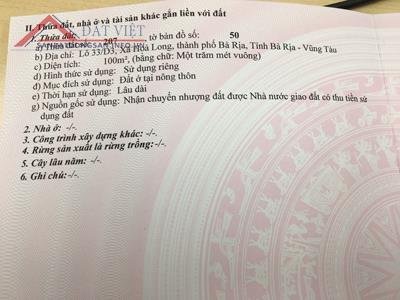 II. Thửa đất, nhà ở và tài sản khác gắn liền với đất
1. Thửa đất:
a) Thửa đất số: 207, tờ bản đồ số: 50
b) Địa chỉ: Lô 33/D3, Xã Hòa Long, thành phố Bà Rịa, Tỉnh Bà Rịa - Vũng Tàu
c) Diện tích: 100m², (bằng chữ: Một trăm mét vuông)
d) Hình thức sử dụng: Sử dụng riêng
đ) Mục đích sử dụng: Đất ở tại nông thôn
e) Thời hạn sử dụng: Lâu dài
g) Nguồn gốc sử dụng: Nhận chuyển nhượng đất được Nhà nước giao đất có thu tiền sử
dụng đất
2. Nhà ở: -/-.
3. Công trình xây dựng khác: -/-.
4. Rừng sản xuất là rừng trồng: -/-.
5. Cây lâu năm: -/-.
6. Ghi chú: -/-.
ĐẤT VIỆT